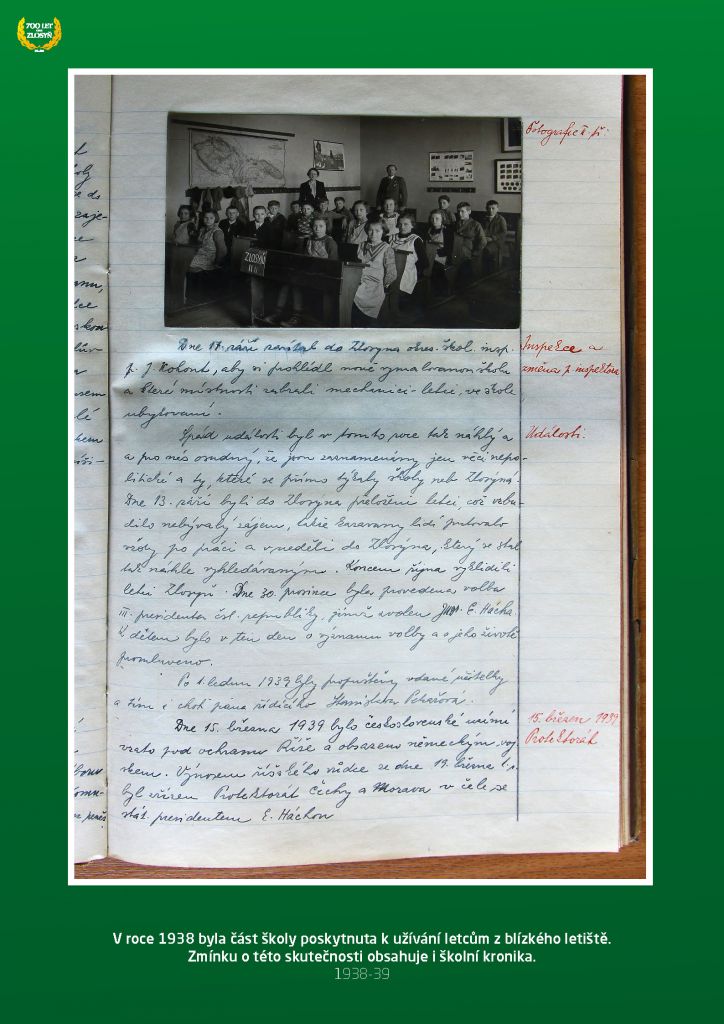 700 LET
ZLOSYŇ
Fotografie II. tř.
ZLOSYŇ
II
Dne 17. září zavítal do Zlosyna okres. škol. insp.
p. J. Kohout, aby si prohlédl nově vymalovanou školu
a které místnosti zabrali mechanici-letci, ve škole
ubytovaní.
Inspekce a
změna p. inspektora
Spád událostí byl v tomto roce tak náhlý a
a pro nás osudný, že jsou zaznamenány jen věci nepo-
litické a ty, které se přímo týkaly školy neb Zlosyna.
Dne 13. září byli do Zlosyna přeloženi letci, což vzbu-
dilo nebývalý zájem, takže karavany lidí putovalo
vždy po práci a v neděli do Zlosyna, který se stal
tak náhle vyhledávaným. Koncem října vyklidili
letci Zlosyň. Dne 30. prosince byla provedena volba
III. presidenta čsl. republiky, jímž zvolen JUDr. E. Hácha.
K dětem bylo v ten den o významu volby a o jeho životě
promluveno.
Události.
Po 1. lednu 1939 byly propuštěny vdané učitelky
a tím i choť pana řídícího Stanislava Pekařová.
Dne 15. března 1939 bylo československé území
vzato pod ochranu Říše a obsazeno německým voj-
skem. Výnosem říšského vůdce ze dne 19. března t. r.
byl zřízen Protektorát Čechy a Morava v čele se
stát. presidentem E. Háchou
15. březen 1939
Protektorát
V roce 1938 byla část školy poskytnuta k užívání letcům z blízkého letiště.
Zmínku o této skutečnosti obsahuje i školní kronika.
1938-39